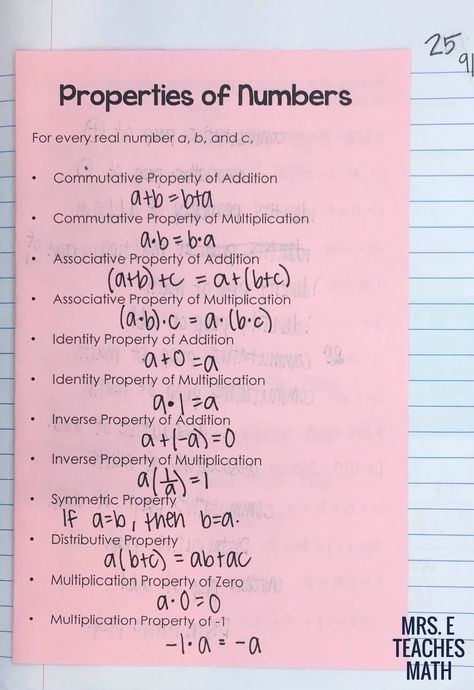 25
91
Properties of Numbers
For every real number a, b, and c,
• Commutative Property of Addition
a+b=b+a
• Commutative Property of Multiplication
a·b=b·a
• Associative Property of Addition
(a+b)+c = a+(b+c)
• Associative Property of Multiplication
(a·b)·c = a·(b·c)
• Identity Property of Addition
a+0=a
• Identity Property of Multiplication
a·1=a
• Inverse Property of Addition
a+(-a)=0
• Inverse Property of Multiplication
a(1/a)=1
• Symmetric Property
If a=b, then b=a.
• Distributive Property
a(b+c)=ab+ac
• Multiplication Property of Zero
a·0=0
• Multiplication Property of -1
-1·a=-a
MRS. E
TEACHES
MATH